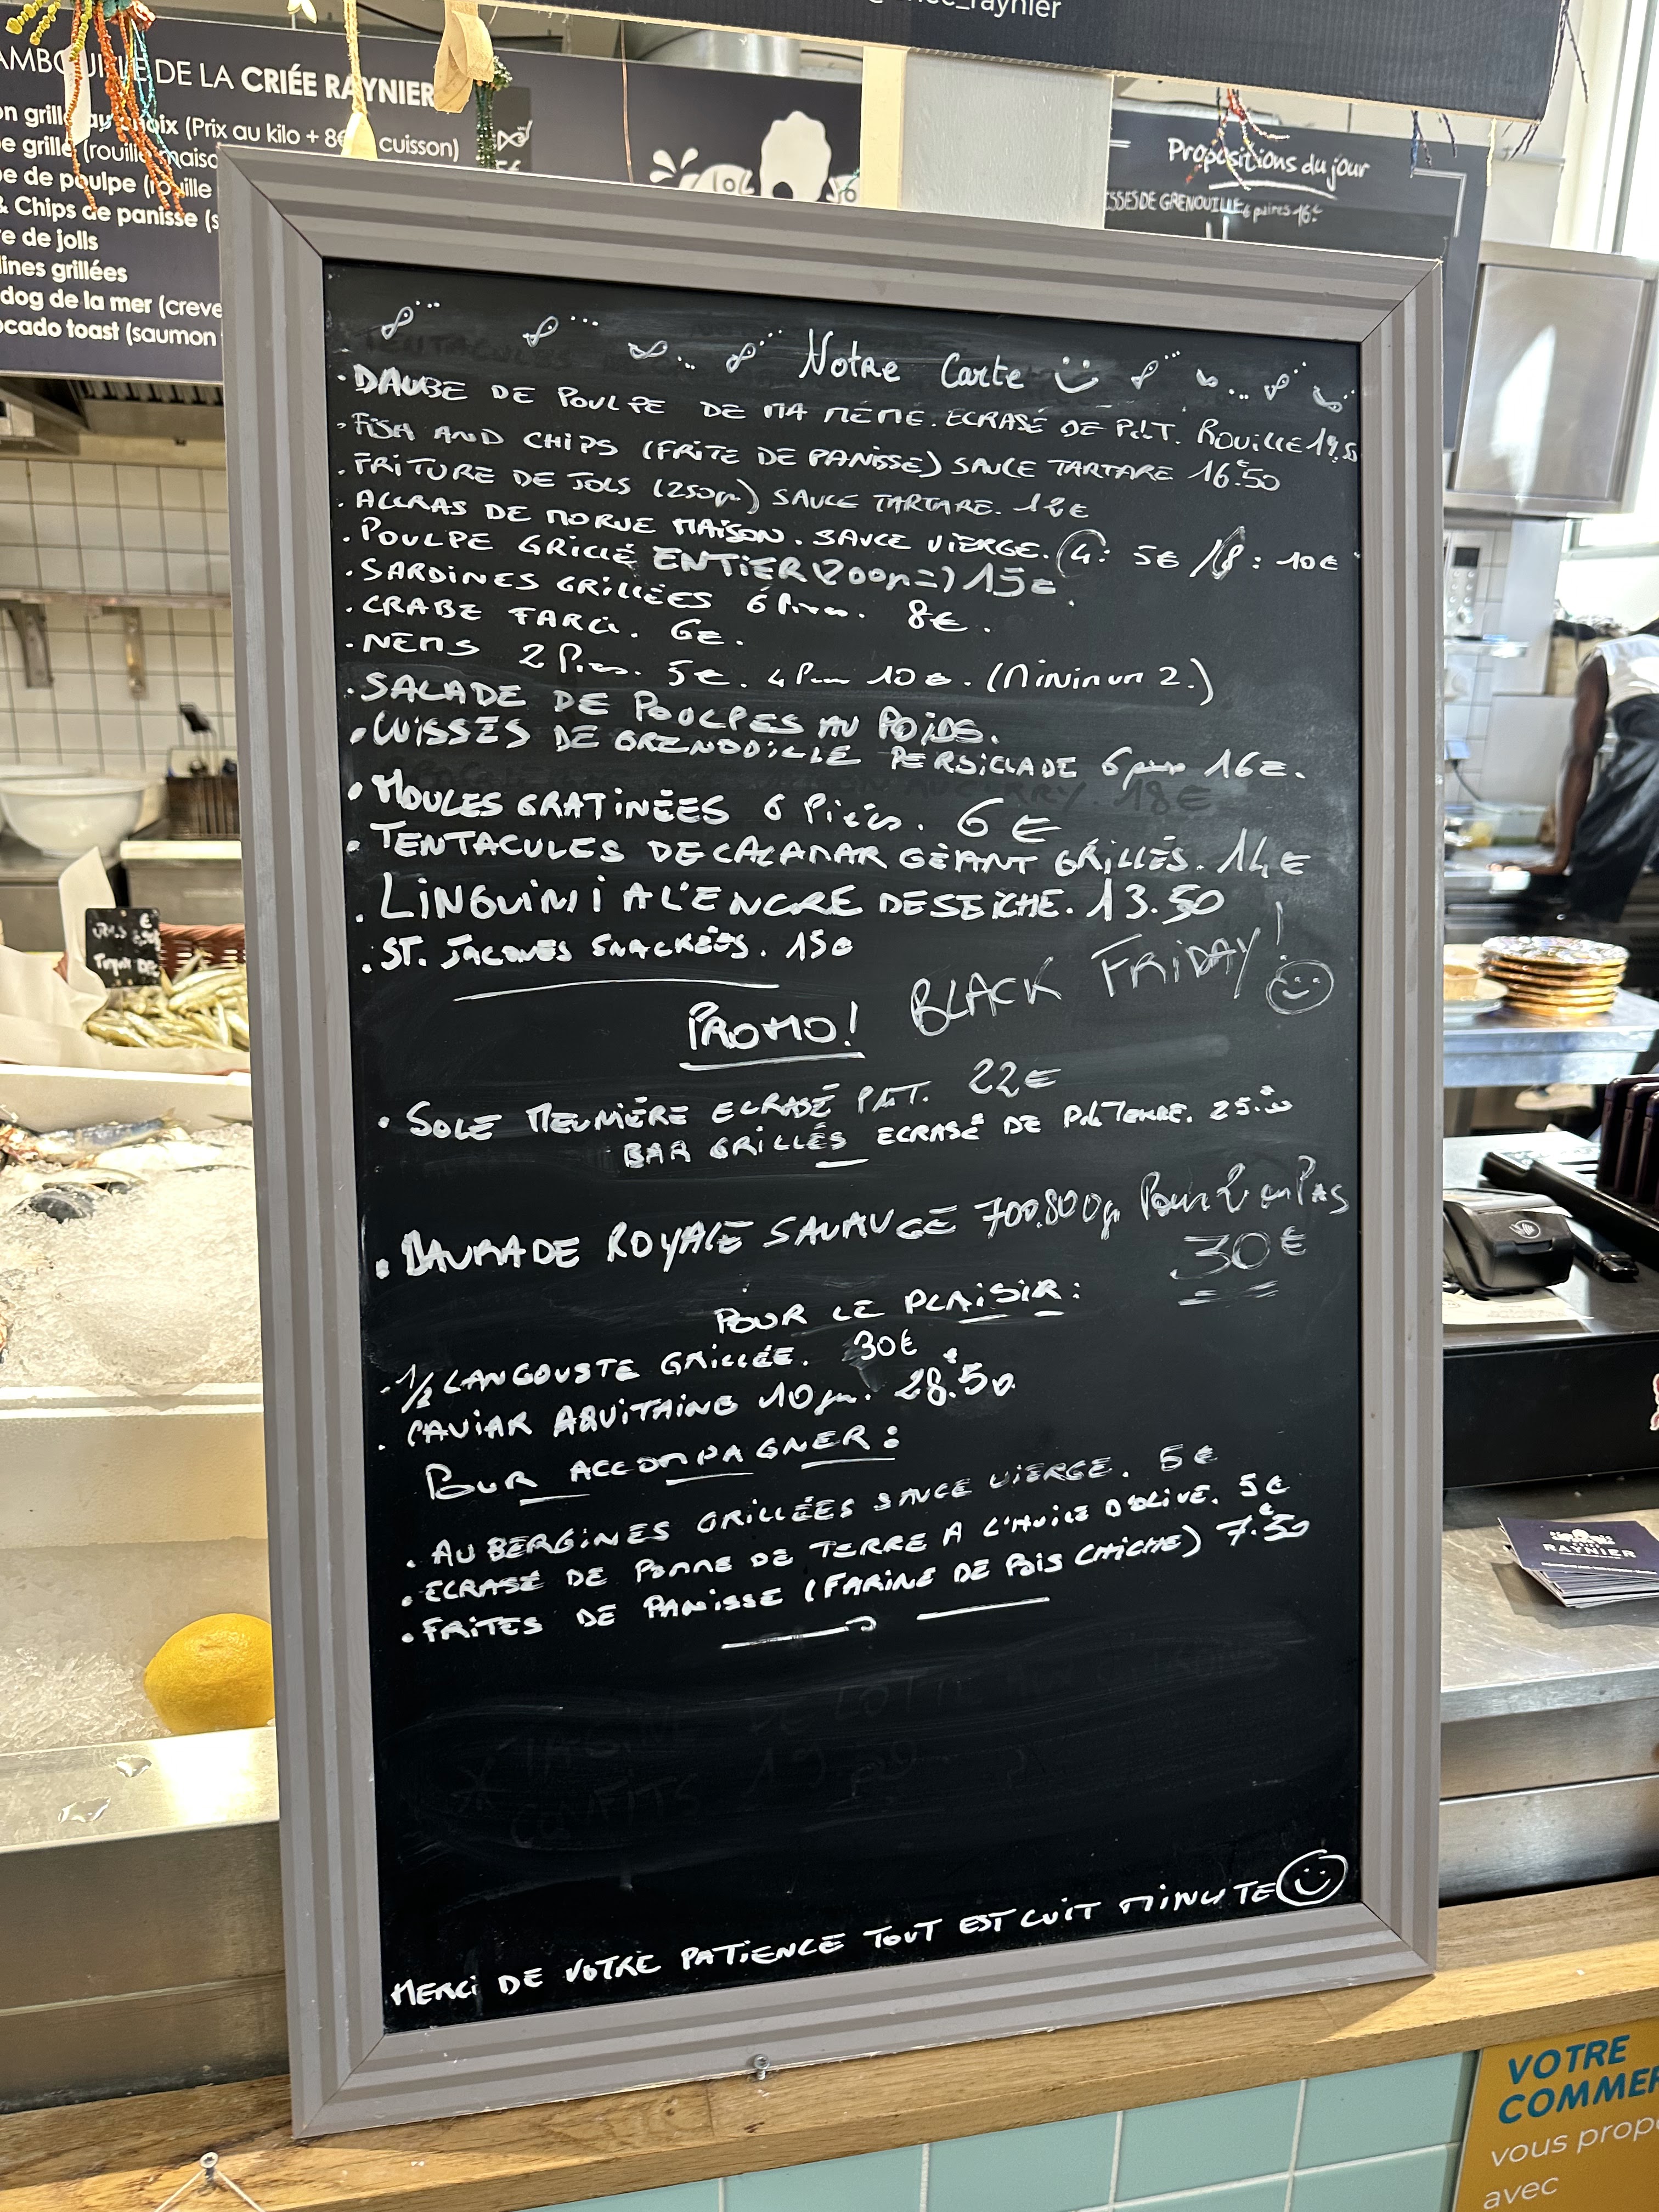 _raynier
DE LA CRIÉE RAYNIER
(Prix au kilo + 8€ cuisson)
grillé (rouille maiso
e de poulpe (rouille
& Chips de panisse (s
e de jolls
dines grillées
dog de la mer (creve
ocado toast (saumon
Propositions du jour
ISSES DE GRENOUILLE 6 paires 16€
Notre Carte
· DAUBE DE POULPE DE MA MÉMÉ. ECRASÉ DE P.d.T. ROUILLE 19.50
· FISH AND CHIPS (FRITE DE PANISSE) SAUCE TARTARE 16.€50
· FRITURE DE JOLS (250gr) SAUCE TARTARE. 12€
· ACCRAS DE MORUE MAISON. SAUCE VIERGE. (4: 5€ / 8: 10€
· POULPE GRILLÉ ENTIER (200gr=) 15€.
· SARDINES GRILLÉES 6 Pièces. 8€.
· CRABE FARCI. 6€.
· NEMS 2 Pièces. 5€. 4 Pièces 10€. (MINIMUM 2.)
· SALADE DE POULPES AU POIDS.
· CUISSES DE GRENOUILLE PERSILLADE 6 paires 16€.
· MOULES GRATINÉES 6 Pièces. 6€
· TENTACULES DE CALAMAR GÉANT GRILLÉS. 14€
· LINGUINI A L'ENCRE DE SEICHE. 13.50
· ST. JACQUES SNACKÉES. 15€
PROMO! BLACK FRIDAY!
· SOLE MEUNIÈRE ECRASÉ P.d.T. 22€
BAR GRILLÉS ECRASÉ DE P.d.TERRE. 25.€00
· DAURADE ROYALE SAUVAGE 700.800gr Pour 2 ou PAS
30€
POUR LE PLAISIR:
· 1/2 LANGOUSTE GRILLÉE. 30€
· CAVIAR AQUITAINE 10gr. 28.€50
POUR ACCOMPAGNER:
· AUBERGINES GRILLÉES SAUCE VIERGE. 5€
· ECRASÉ DE POMME DE TERRE A L'HUILE D'OLIVE. 5€
· FRITES DE PANISSE (FARINE DE POIS CHICHE) 7.€50
MERCI DE VOTRE PATIENCE TOUT EST CUIT MINUTE
RAYNIER
VOTRE
COMMER
vous propo
avec